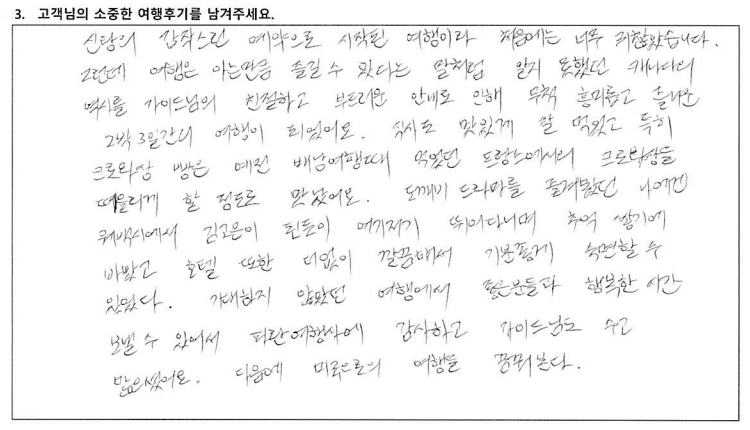 3. 고객님의 소중한 여행후기를 남겨주세요.
신랑의 갑작스런 예약으로 시작된 여행이라 처음에는 너무 귀찮았습니다.
그런데 여행은 아는만큼 즐길 수 있다는 말처럼 알지 못했던 캐나다의
역사를 가이드님의 친절하고 부드러운 안내로 인해 무척 흥미롭고 즐거운
2박 3일간의 여행이 되었어요. 식사도 맛있게 잘 먹었고 특히
크로와상 빵은 예전 배낭여행때 먹었던 프랑스에서의 크로와상을
떠올리게 할 정도로 맛났어요. 도깨비 드라마를 즐겨봤던 나에겐
퀘백시에서 김고은이 된듯이 여기저기 뛰어다니며 추억 쌓기에
바빴고 호텔 또한 더없이 깔끔해서 기분좋게 숙면할 수
있었다. 기대하지 않았던 여행에서 좋은분들과 행복한 시간
보낼 수 있어서 파란여행사에 감사하고 가이드님도 수고
많으셨어요. 다음에 미국으로의 여행을 꿈꿔본다.